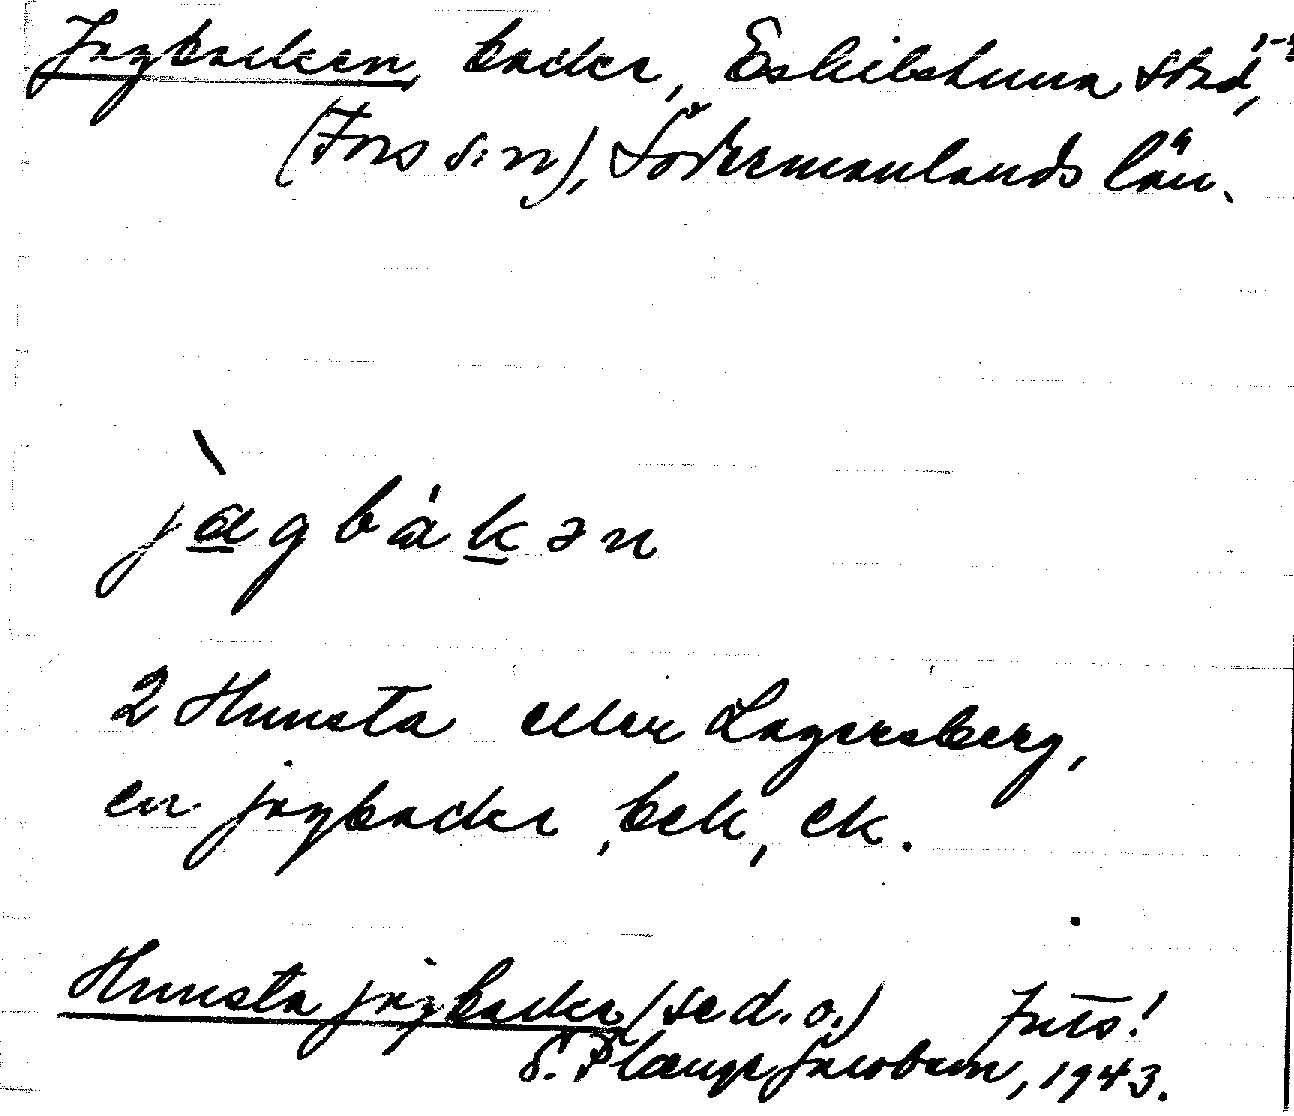 Jagbacken backe, Eskilstuna stad,
(Fors s:n), Södermanlands län.
jàgbákən
2 Hunsta eller Lagersberg,
en jagbacke, bek, ek.
Hunsta jagbacke (se d. o.) Fors!
S. Plænge Jacobson, 1943.